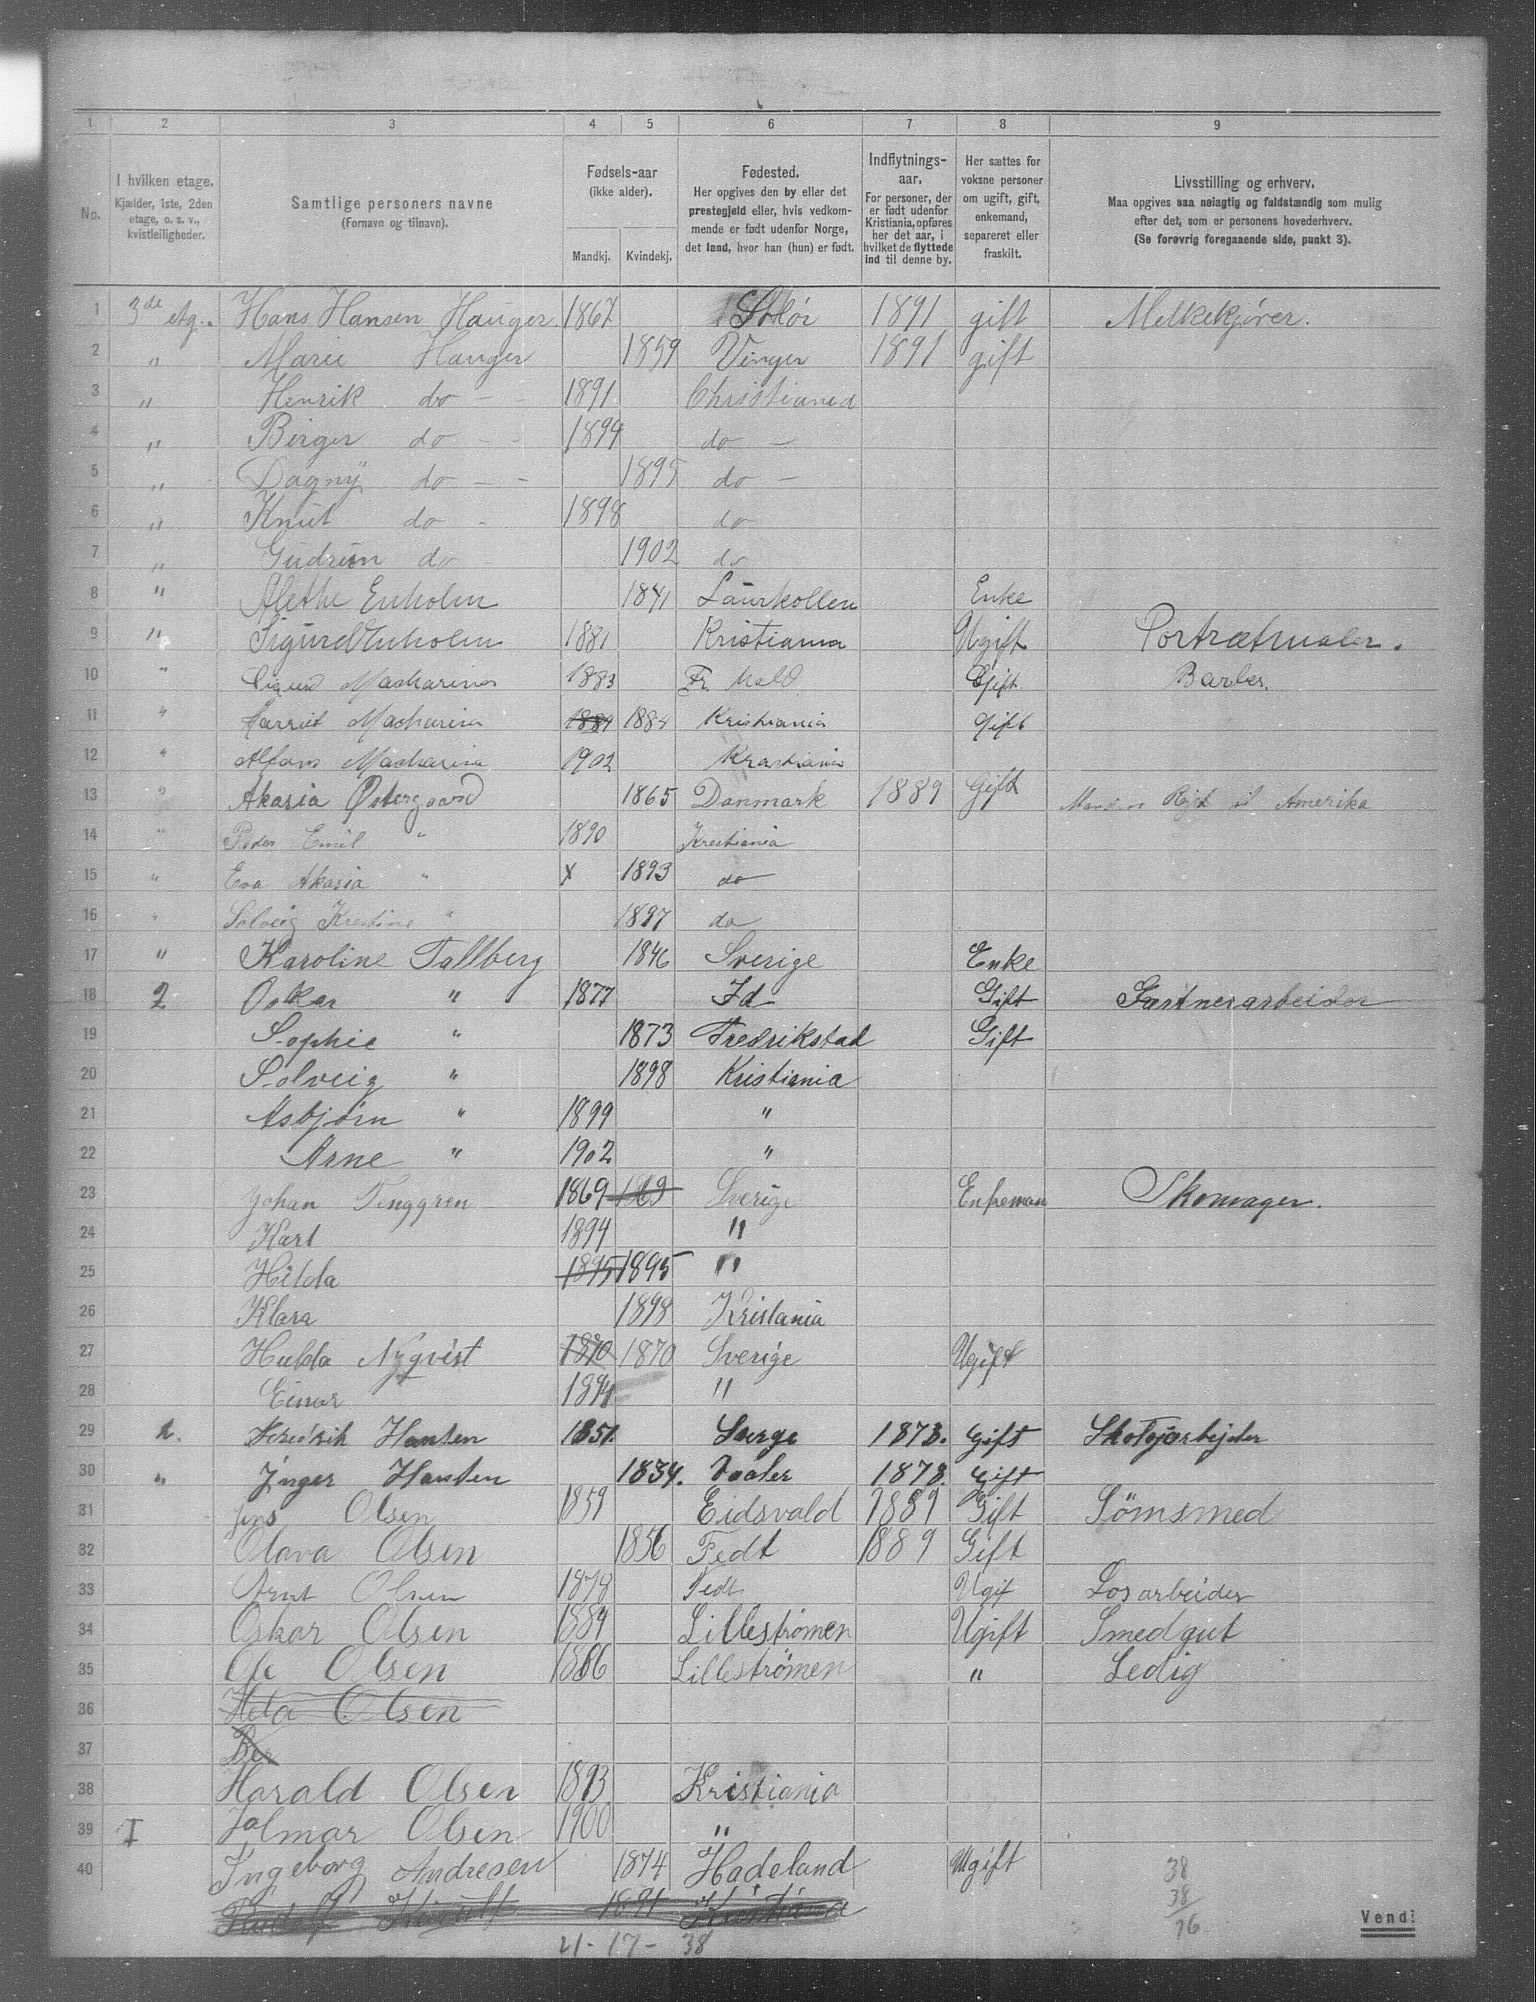 1 2 3 4 5 6 7 8 9
No.
I hvilken etage.
Kjælder, 1ste, 2den
etage, o. s. v.,
kvistleiligheder.
Samtlige personers navne
(Fornavn og tilnavn).
Fødsels-aar
(ikke alder).
Mandkj. Kvindekj.
Fødested.
Her opgives den by eller det
prestegjeld eller, hvis vedkom-
mende er født udenfor Norge,
det land, hvor han (hun) er født.
Indflytnings-
aar.
For personer, der
er født udenfor
Kristiania, opføres
her det aar, i
hvilket de flyttede
ind til denne by.
Her sættes for
voksne personer
om ugift, gift,
enkemand,
separeret eller
fraskilt.
Livsstilling og erhverv.
Maa opgives saa nøiagtig og fuldstændig som mulig
efter det, som er personens hovederhverv.
(Se forøvrig foregaaende side, punkt 3).
1 3de etg. Hans Hansen Hauger 1867 Solør 1891 gift Melkekjører.
2 " Marie Hauger 1859 Vinger 1891 gift
3 " Henrik do - - 1891 Christiania
4 " Birger do - - 1894 do -
5 " Dagny do - - 1895 do -
6 " Knut do - 1898 do
7 " Gudrun do - 1902 do
8 " Alethe Enholm 1841 Laurkollen Enke
9 " Sigurd Enholm 1881 Kristiania Ugift Portrætmaler.
10 " Sigurd 1883 Fr. Hald Gift Barber.
11 " Harriet 1884 1884 Kristiania Gift
12 " Alfons 1902 Kristiania
13 " Akasia Østergaard 1865 Danmark 1889 Gift Manden Rejst til Amerika
14 " Peder Emil " 1890 Kristiania
15 " Eva Akasia " x 1893 do
16 " Solveig Kristine " 1897 do
17 " Karoline Tallberg 1846 Sverige Enke
18 2 Oskar " 1877 Id Gift Gartnerarbeider
19 Sophie " 1873 Fredrikstad Gift
20 Solveig " 1898 Kristiania
21 Asbjørn " 1899 "
22 Arne " 1902 "
23 Johan Tenggren 1869 1869 Sverige Enkeman Skomager.
24 Karl 1894 "
25 Hilda 1895 1895 "
26 Klara 1898 Kristania
27 Hulda Nyqvist 1870 1870 Sverige Ugift
28 Einar 1894 "
29 2. Fredrik Hansen 1851. Sverge 1878. Gift Skotøjarbejder
30 " Inger Hansen 1834. Vaaler 1878. Gift
31 Jens Olsen 1859 Eidsvold 1889 Gift Sömsmed
32 Olava Olsen 1856 Fedt 1889 Gift
33 Arnt Olsen 1878 Fedt Ugif Losarbeider
34 Oskar Olsen 1884 Lilleströmen Ugift Smedgut
35 Ole Olsen 1886 Lilleströmen " Ledig
36 Olsen
37
38 Harald Olsen 1893 Kristiania
39 I Halmar Olsen 1900 "
40 Ingeborg Andresen 1874 Hadeland Ugift 38
Rudolf 1891 Kristiania 38
76
21 - 17 - 38
Vend!